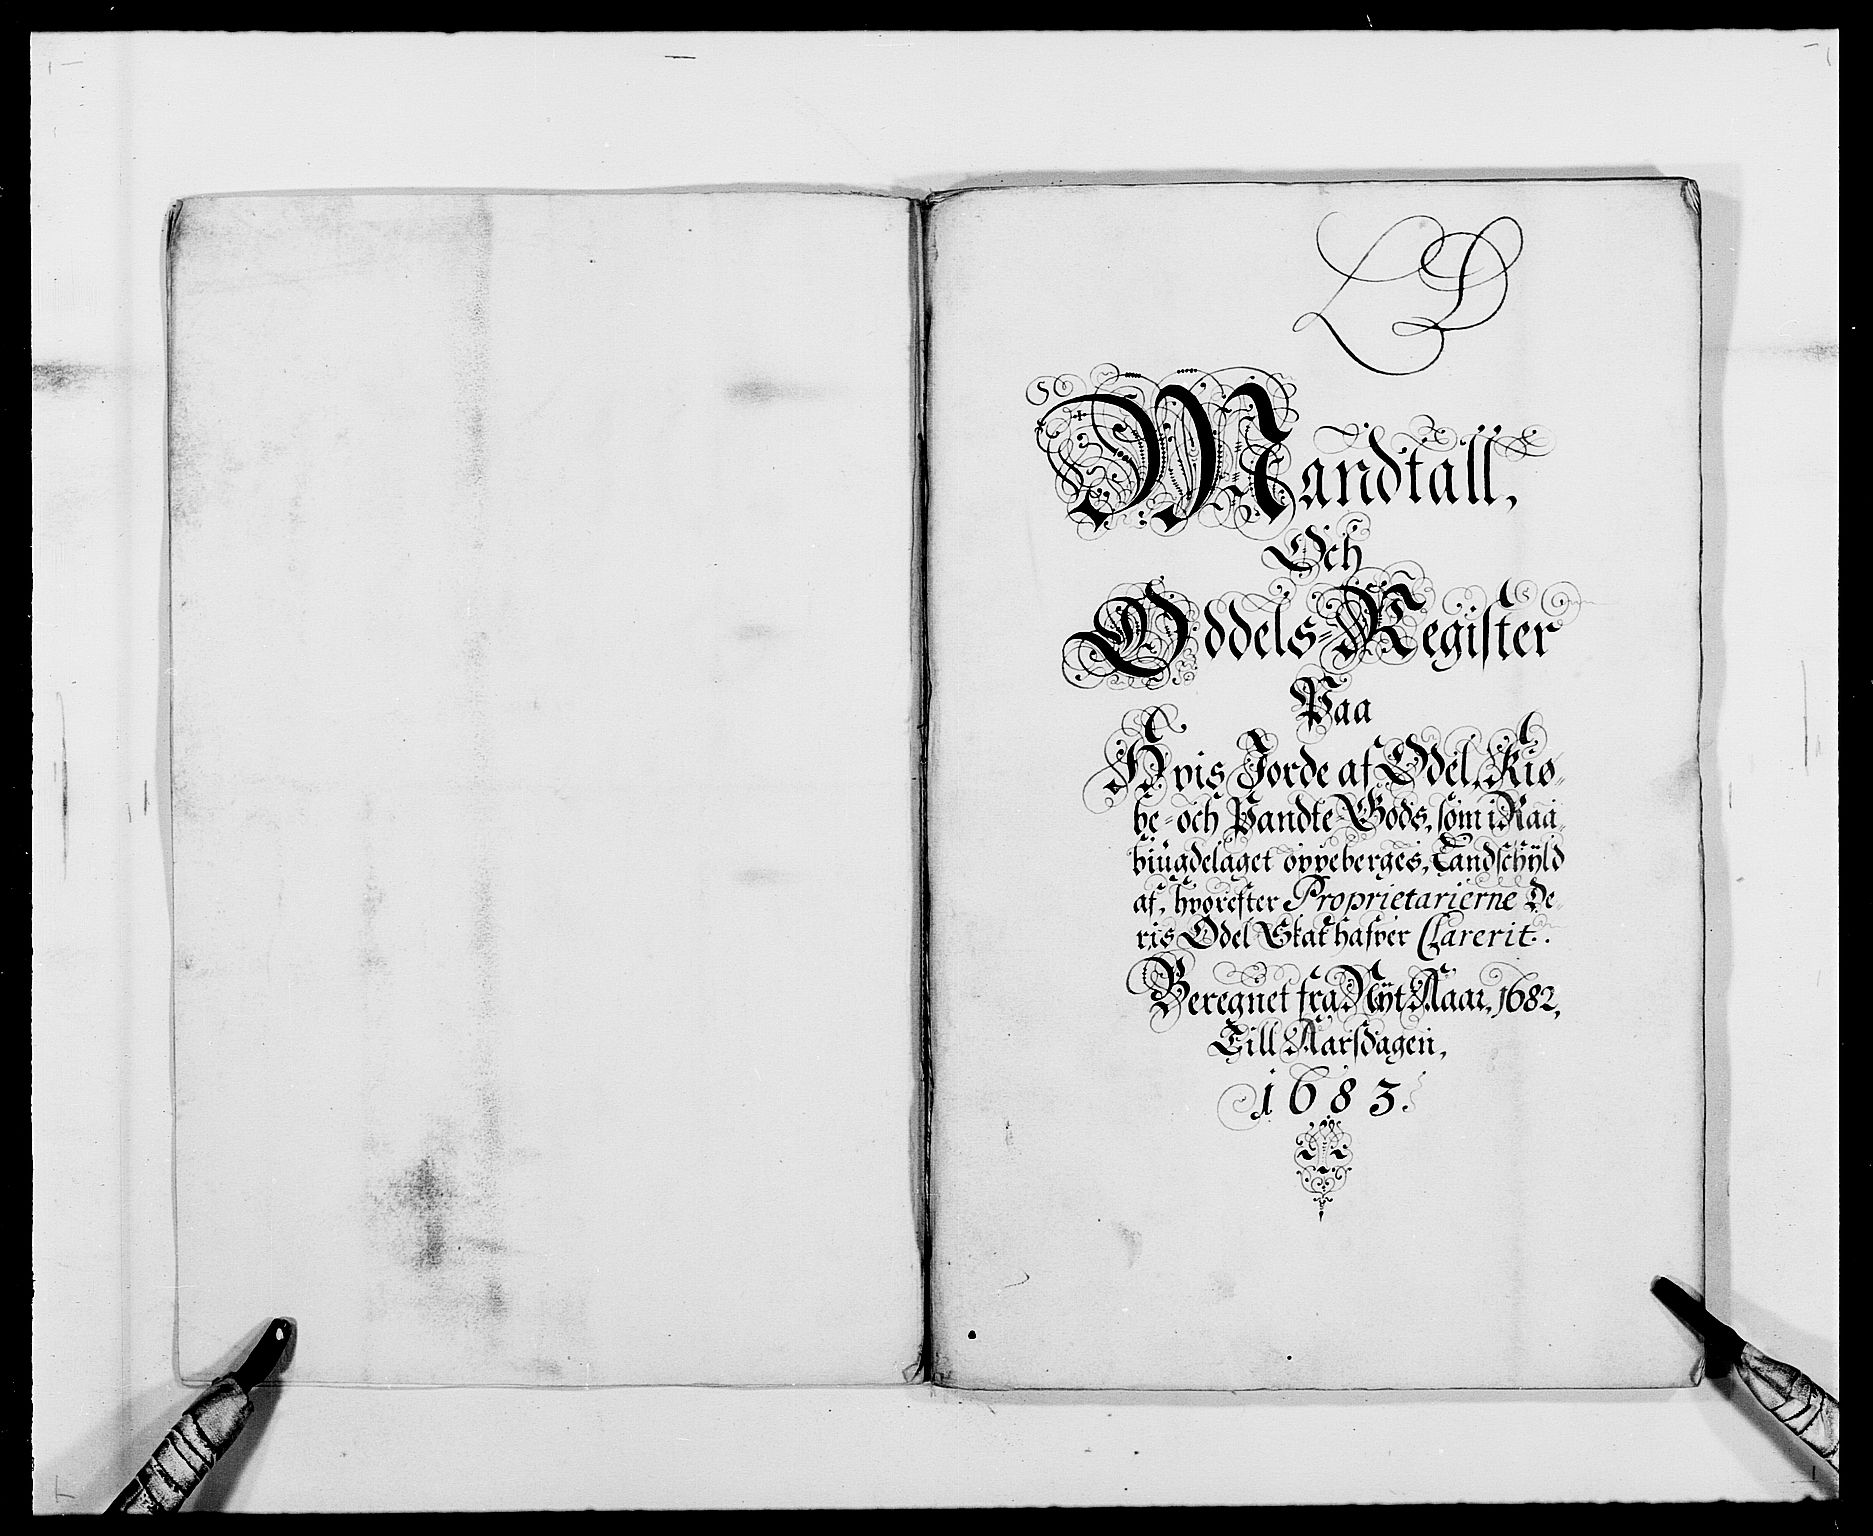 LD
Mandtall,
Och
Oddels-Register
Paa
Hvis Jorde af Odel, Kiø-
be- och Pandte-Gods, som i Raa-
biugdelaget oppeberges, Landschyld
af, hvorefter Proprietarierne De-
ris Odel Skat hafver Clarerit.
Beregnet fra Nyt Aaar, 1682,
Till Aarsdagen,
1683.